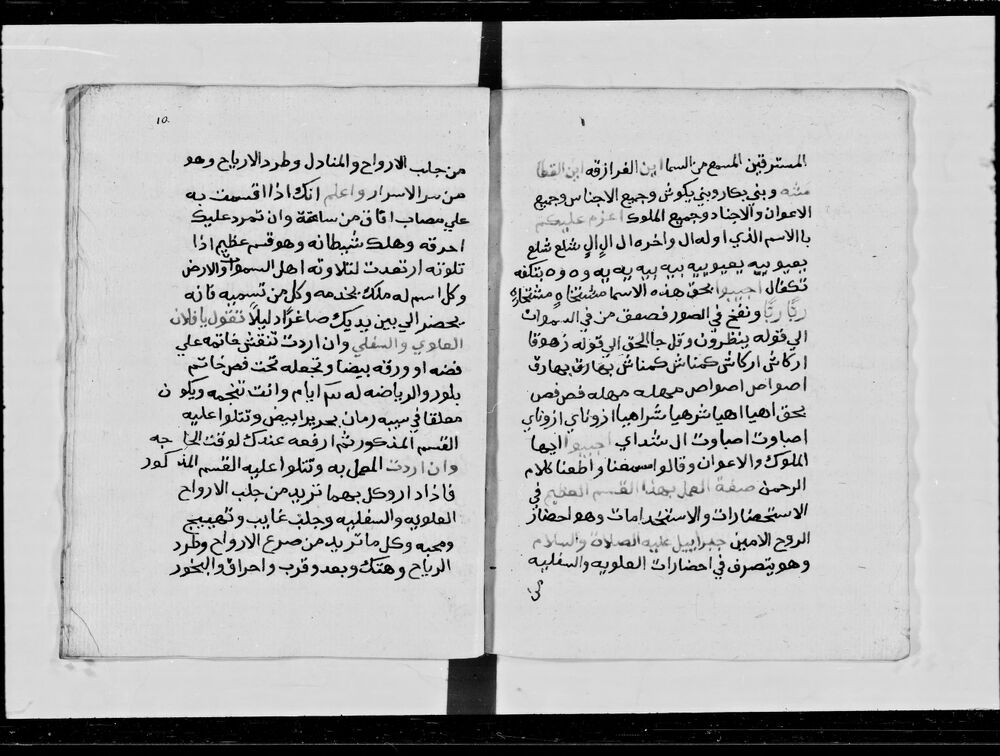 المسترقين السمع من السما اين الفرازقه اين القطا
مشه وبني بكار وبني يكوش وجميع الاجناس وجميع
الاعوان والاجناد وجميع الملوك اعزم عليكم
باالاسم الذي اوله ال واخره ال الٍ الٍ شلع شلع
يعيو بيه يعيوبيه بيه بيه يه يه وه وه بتكفه
تكفال اجيبوا بحق هذه الاسما
ربًّا ربًّا ونفخ في الصور فصعق من في السموات
الي قوله ينظرون وقل جا الحق الي قوله زهوقا
اركاش اركاش كمناش كمناش بهارق بهارق
اصواص اصواص مهله مهله فص فص
بحق اهيا اهيا شرهيا شراهيا ازوناي ازوناي
اصباوت اصباوت ال شداي اجيبوا ايها
الملوك والاعوان وقالوا سمعنا واطعنا كلام
الرحمن صفة العمل بهذا القسم العظيم في
الاستحضارات والاستخدامات وهو احضار
الروح الامين جبراييل عليه الصلاة والسلام
وهو يتصرف في احضارات العلويه والسفليه
من
10.
من جلب الارواح والمنادل وطرد الارياح وهو
من سر الاسرار واعلم انك اذا اقسمت به
علي مصاب افاق من ساعتة وان تمرد عليك
احرقه وهلك شيطانه وهو قسم عظيم اذا
تلوته ارتعدت لتلاوته اهل السموات والارض
وكل اسم له ملك يخدمه وكل من تسميه فانه
يحضر الي بين يديك صاغرًا ذليلًا تقول يا فلان
العلوي والسفلي وان اردت تنقش خاتمه علي
فضه او ورقه بيضا وتجعله تحت فص خاتم
بلور والرياضه له ايام وانت تنجمه ويكون
معلقا في سيبه رمان بحرير ابيض وتتلوا عليه
القسم المذكور ثم ارفعه عندك لوقت الحاجه
وان اردت العمل به وتتلوا عليه القسم المذكور
فاذا دار وكل بهما تريد من جلب الارواح
العلويه والسفليه وجلب غايب وتهييج
ومحبه وكل ما تريد من صرع الارواح وطرد
الرياح وهتك وبعد وقرب واحراق والبخور